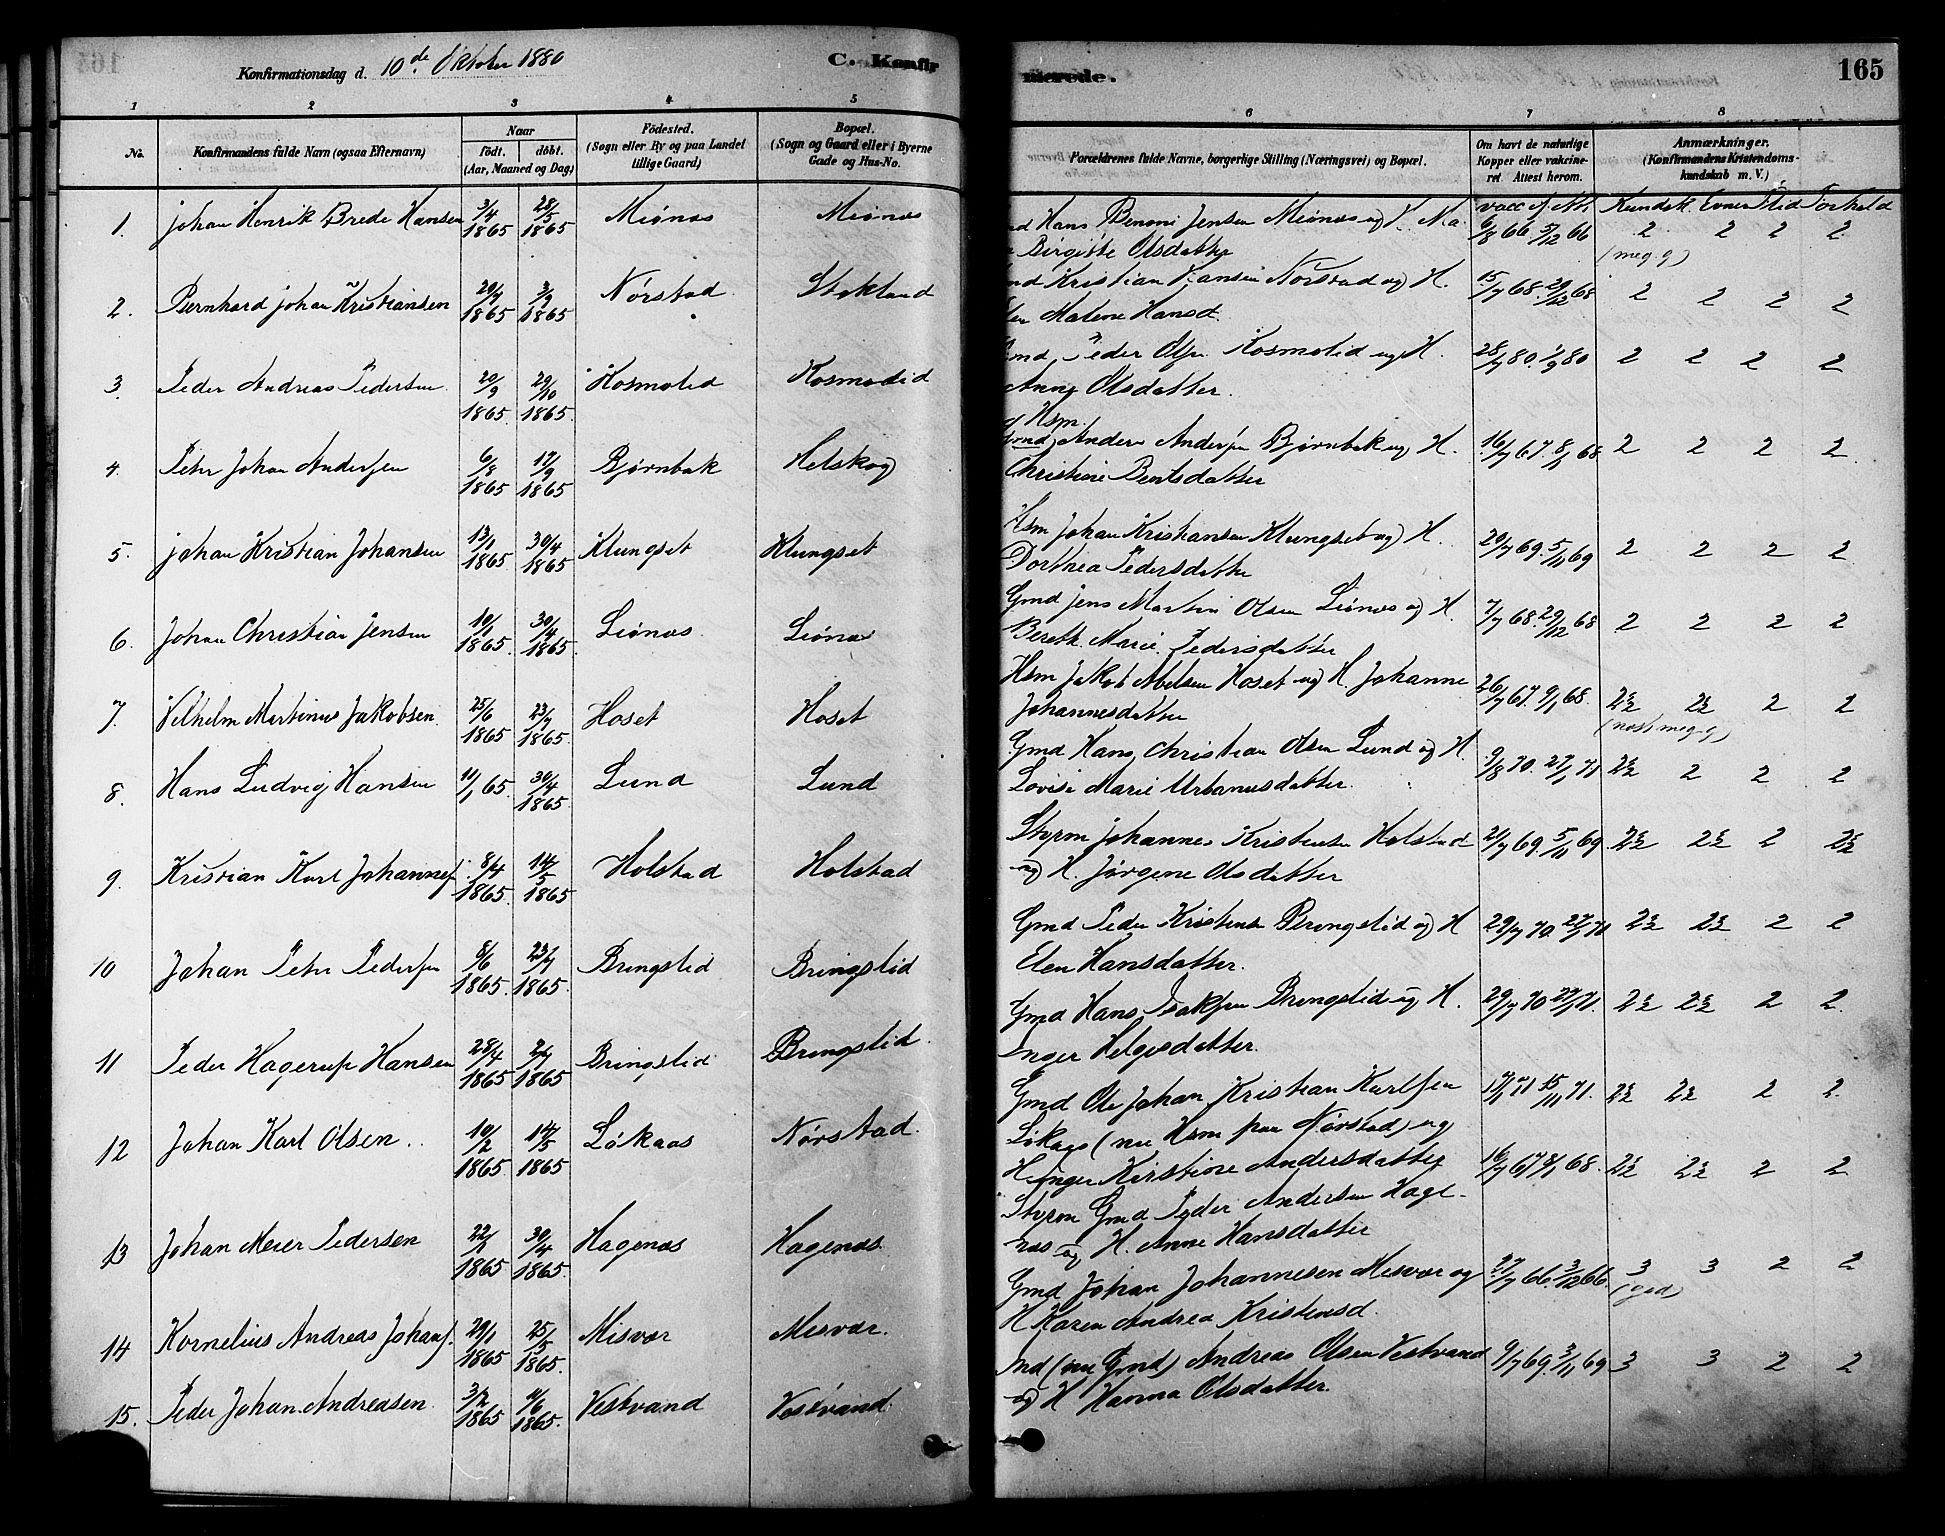 Konfirmationsdag d. 10de Oktober 1880 C. Konfirmerede. 165
1 2 3 4 5 6 7 8
No. Konfirmandens fulde Navn (ogsaa Efternavn) Naar født. døbt. (Aar, Maaned og Dag) Födested. (Sogn eller By og paa Landet tillige Gaard) Bopæl. (Sogn og Gaard eller i Byerne Gade og Hus-No.
Forældrenes fulde Navne, borgerlige Stilling (Næringsvei) og Bopæl. Om havt de naturlige Kopper eller vakcineret Attest herom. Anmærkninger. (Konfirmandens Kristendomskundskab m. V.)
Kundsk. Evner Flid Forhold
1. Johan Henrik Brede Hansen 3/4 1865 28/5 1865 Miønæs Miønæs
Hans Benoni Jensen Miønæs og
Birgitte Olsdatter 6/8 66. 5/12 66 2 (meg. g) 2 2 2
2. Bernhard Johan Kristiansen 20/7 1865 3/9 1865 Nørstad Stokland
Kristian Hansen Nørstad og H.
Malene Hansd. 15/7 68. 29/12 68 2 2 2 2
3. Peder Andreas Pedersen 20/9 1865 29/10 1865 Kosmolid Kosmolid
Peder Olsen Kosmolid og H.
Anne Olsdatter. 28/7 80. 1/9 80 2 2 2 2
4. Petter Johan Andersen 6/8 1865 17/9 1865 Bjørnbak Helskog
Hsm
Anders Andersen Bjørnbak og H.
Christine Bentsdatter 16/7 67. 8/1 68 2 2 2 2
5. Johan Kristian Johansen 13/1 1865 30/4 1865 Klungset Klungset
Hsm Johan Kristiansen Klungset og H.
Dorthea Pedersdatter 20/7 69. 5/11 69 2 2 2 2
6. Johan Christian Jensen 10/1 1865 30/4 1865 Liønæs Liønæs
Gmd Jens Martin Olsen Liønæs og H.
Bereth Marie Pedersdatter 7/7 68. 29/12 68 2 2 2 2
7. Vilhelm Martinus Jakobsen 25/6 1865 23/7 1865 Hoset Hoset
Hsm Jakob Abelsen Hoset og H Johanne
Johannesdatter 26/7 67. 9/1 68. 2½ (næst meg. g) 2½ 2 2
8. Hans Ludvig Hansen 11/1 65 30/4 1865 Lund Lund
Gmd Hans Christian Olsen Lund og H.
Lovise Marie Urbanusdatter 9/8 70. 27/1 71 2½ 2 2 2
9. Kristian Karl Johannes. 8/4 1865 14/5 1865 Holstad Holstad
Styrm Johannes Kristensen Holstad
og H. Jørgine Olsdatter 21/7 69. 5/11 69 2½ 2½ 2 2½
10 Johan Petter Pedersen 8/6 1865 23/7 1865 Bringslid Bringslid
Gmd Peder Kristensen Bringslid og H
Elen Hansdatter. 29/7 70. 27/1 71 2½ 2½ 2 2
11 Peder Hagerup Hansen 28/4 1865 2/7 1865 Bringslid Bringslid.
Gmd Hans Isaksen Bringslid og H.
Inger Helgesdatter. 29/7 70 27/1 71. 2½ 2½ 2 2
12 Johan Karl Olsen. 10/2 1865 14/5 1865 Løkaas Nørstad.
Gmd Ole Johan Kristian Karlsen
Løkaas (nu Hsm paa Nørstad) og
H Inger Kirstine Andersdatter 17/7 71 15/11 71. 2½ 2½ 2 2
13 Johan Meier Pedersen 22/2 1865 30/4 1865 Hagenæs Hagenæs
Styrm Gmd Peder Andersen Hage-
næs og H. Anne Hansdatter 16/7 67 8/1 68. 2½ 2½ 2 2
14 Kornelius Andreas Johans. 29/1 1865 25/5 1865. Misvær Misvær.
Gmd Johan Johannesen Misvær og
H Karen Andrea Kristensd. 27/7 66. 3/12 66 3 (god) 3 2 2
15. Peder Johan Andreasen 3/2 1865 4/6 1865. Vestvand Vestvand
Ind (nu Gmd) Andreas Olsen Vestvand
og H Hanna Olsdatter. 9/7 69. 3/11 69 3 3 2 2